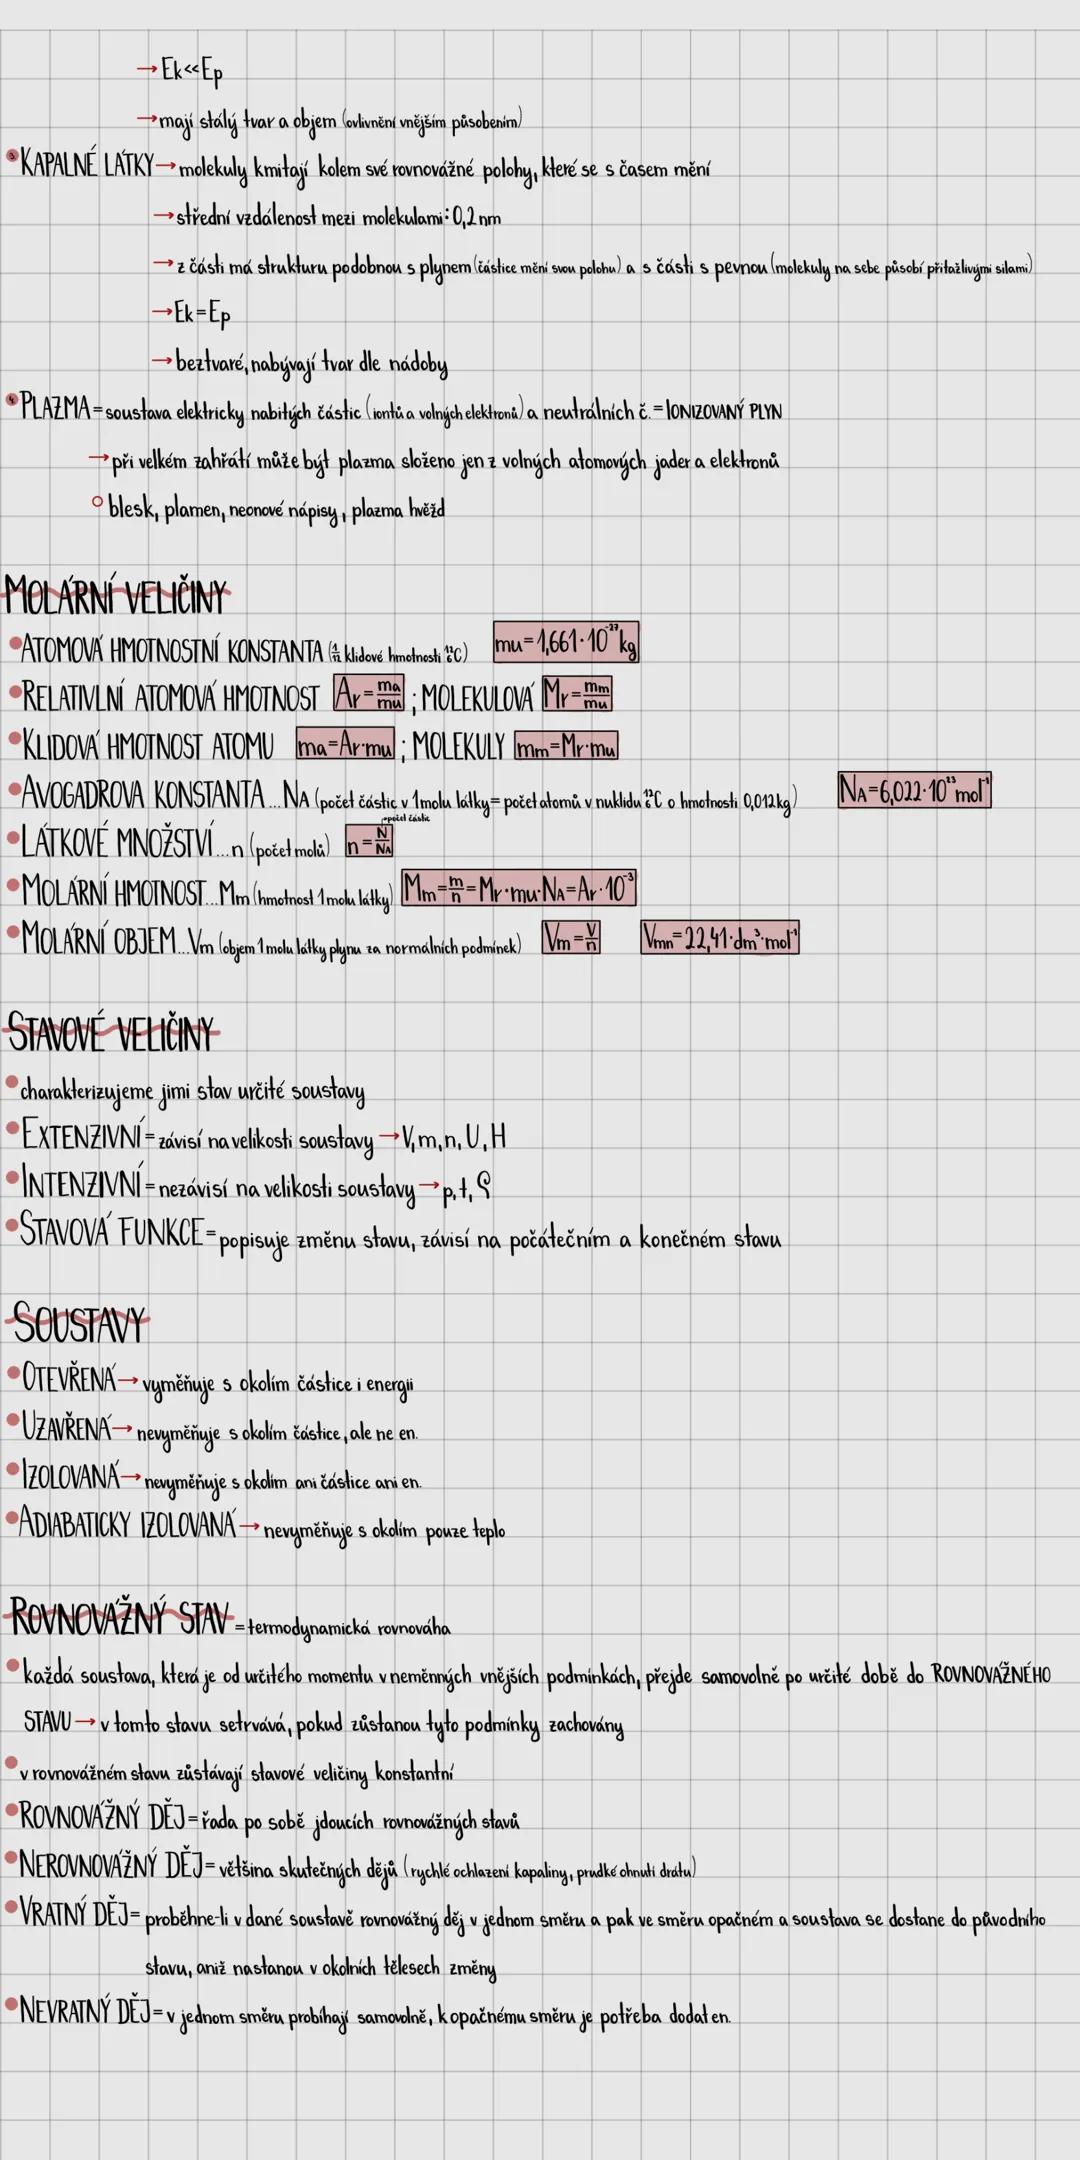 → Ek<<Ep
→ mají stálý tvar a objem (ovlivnění vnějším působením)
3 KAPALNÉ LÁTKY → molekuly kmitají kolem své rovnovážné polohy, které se s časem mění
→ střední vzdálenost mezi molekulami: 0,2 nm
→ z části má strukturu podobnou s plynem (částice mění svou polohu) a s části s pevnou (molekuly na sebe působí přitažlivými silami)
→ Ek = Ep
→ beztvaré, nabývají tvar dle nádoby
4 PLAZMA = soustava elektricky nabitých částic (iontů a volných elektronů) a neutrálních č. = IONIZOVANÝ PLYN
→ při velkém zahřátí může být plazma složeno jen z volných atomových jader a elektronů
○ blesk, plamen, neonové nápisy, plazma hvězd
MOLÁRNÍ VELIČINY
• ATOMOVÁ HMOTNOSTNÍ KONSTANTA (1/12 klidové hmotnosti ¹²₆C) mu = 1,661·10⁻²⁷ kg
• RELATIVLNÍ ATOMOVÁ HMOTNOST Ar = ma/mu ; MOLEKULOVÁ Mr = mm/mu
• KLIDOVÁ HMOTNOST ATOMU ma = Ar·mu ; MOLEKULY mm = Mr·mu
• AVOGADROVA KONSTANTA ... NA (počet částic v 1 molu látky = počet atomů v nuklidu ¹²₆C o hmotnosti 0,012 kg) NA = 6,022·10²³ mol⁻¹
• LÁTKOVÉ MNOŽSTVÍ ... n (počet molů) n = N/NA → počet částic
• MOLÁRNÍ HMOTNOST ... Mm (hmotnost 1 molu látky) Mm = m/n = Mr·mu·NA = Ar·10⁻³
• MOLÁRNÍ OBJEM ... Vm (objem 1 molu látky plynu za normálních podmínek) Vm = V/n Vmn = 22,41·dm³·mol⁻¹
STAVOVÉ VELIČINY
• charakterizujeme jimi stav určité soustavy
• EXTENZIVNÍ = závisí na velikosti soustavy → V, m, n, U, H
• INTENZIVNÍ = nezávisí na velikosti soustavy → p, t, ρ
• STAVOVÁ FUNKCE = popisuje změnu stavu, závisí na počátečním a konečném stavu
SOUSTAVY
• OTEVŘENÁ → vyměňuje s okolím částice i energii
• UZAVŘENÁ → nevyměňuje s okolím částice, ale ne en.
• IZOLOVANÁ → nevyměňuje s okolím ani částice ani en.
• ADIABATICKY IZOLOVANÁ → nevyměňuje s okolím pouze teplo
ROVNOVÁŽNÝ STAV = termodynamická rovnováha
• každá soustava, která je od určitého momentu v neměnných vnějších podmínkách, přejde samovolně po určité době do ROVNOVÁŽNÉHO
STAVU → v tomto stavu setrvává, pokud zůstanou tyto podmínky zachovány
• v rovnovážném stavu zůstávají stavové veličiny konstantní
• ROVNOVÁŽNÝ DĚJ = řada po sobě jdoucích rovnovážných stavů
• NEROVNOVÁŽNÝ DĚJ = většina skutečných dějů (rychlé ochlazení kapaliny, prudké ohnutí drátu)
• VRATNÝ DĚJ = proběhne-li v dané soustavě rovnovážný děj v jednom směru a pak ve směru opačném a soustava se dostane do původního
stavu, aniž nastanou v okolních tělesech změny
• NEVRATNÝ DĚJ = v jednom směru probíhají samovolně, k opačnému směru je potřeba dodat en.